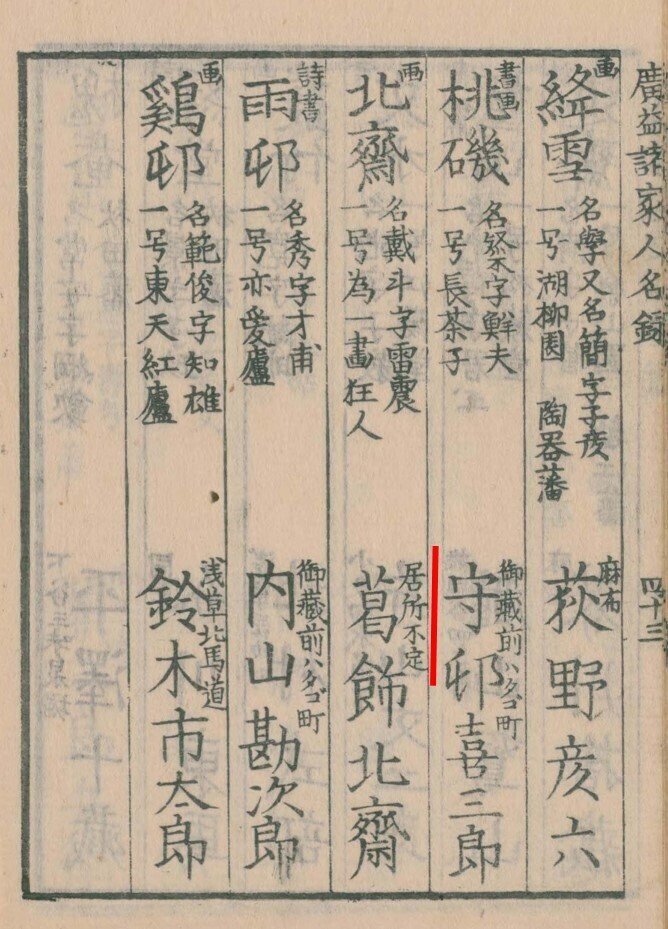 廣益諸家人名録
四十三
画
絳雪
名學又名簡字子彦
一号湖柳園
陶器藩
麻布
荻野彦六
書画
桃磯
名粲字鮮夫
一号長茶子
御藏前ハタゴ町
守邨喜三郎
画
北齋
名戴斗字雷震
一号為一畫狂人
居所不定
葛飾北齋
詩書
雨邨
名秀字才甫
一号亦愛廬
御藏前ハタゴ町
内山勘次郎
画
鷄邨
名範俊字知雄
一号東天紅廬
浅草北馬道
鈴木市太郎